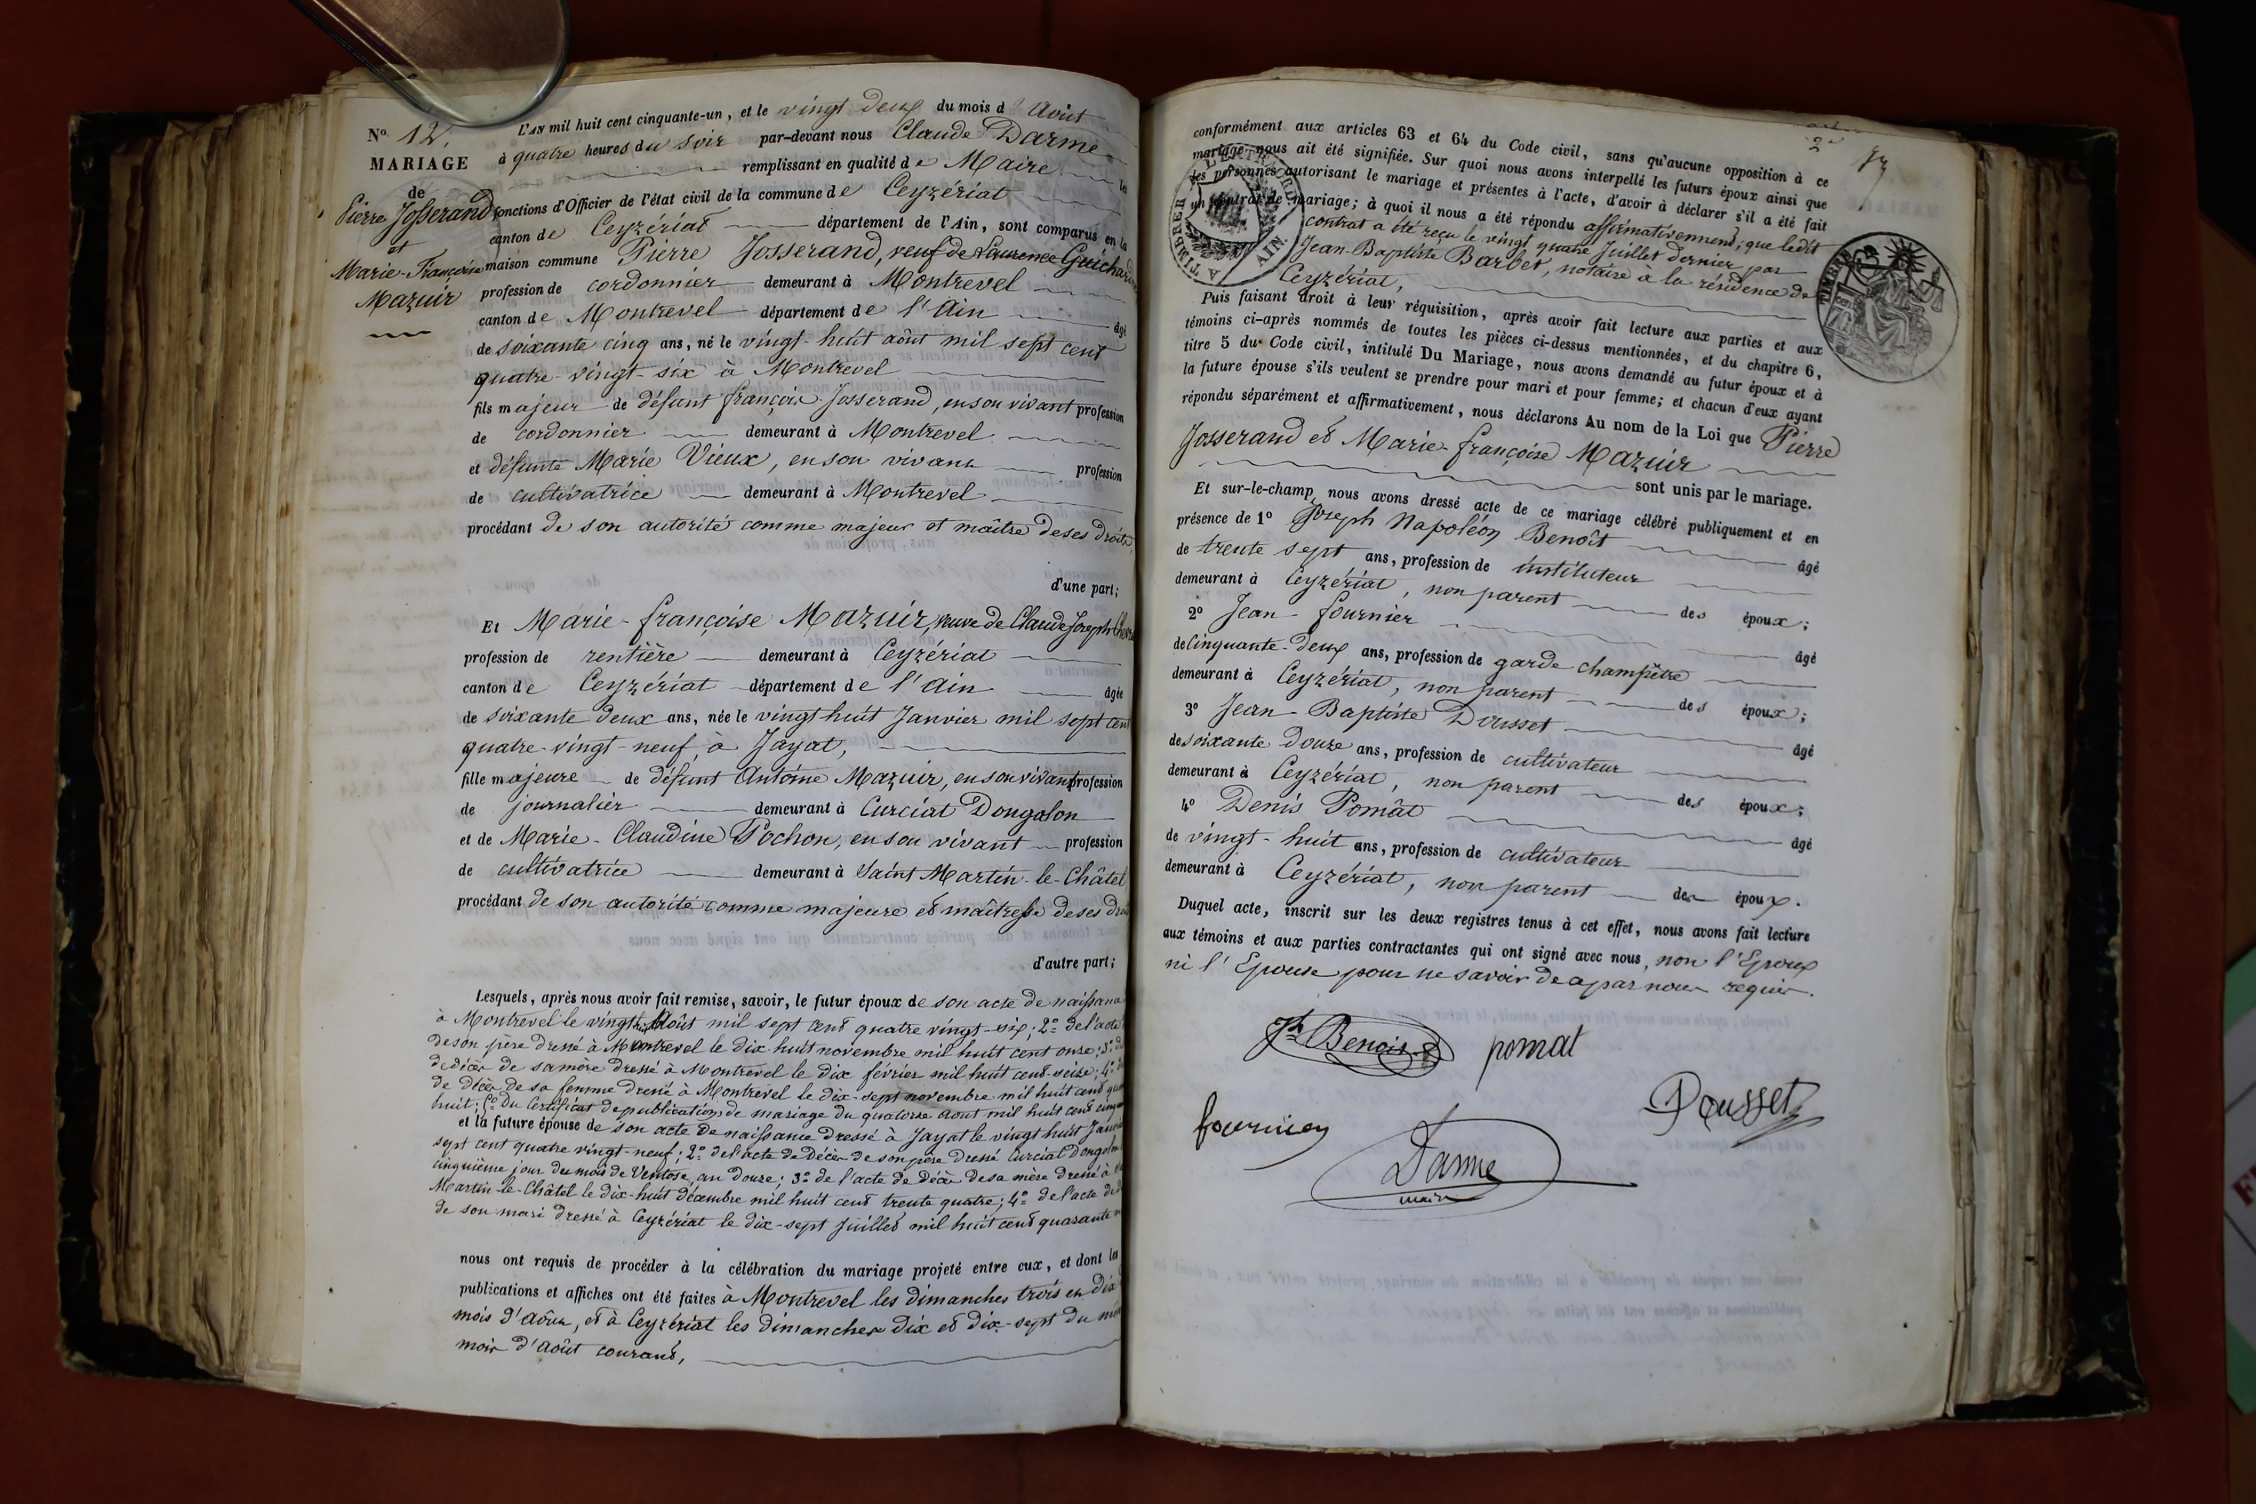 N.o 12.
MARIAGE
de
Pierre Josserand
et
Marie-Françoise
Mazuir
L'AN mil huit cent cinquante-un, et le vingt deux du mois d'Août
à quatre heures du soir par-devant nous Claude Darme
remplissant en qualité de Maire les
fonctions d'Officier de l'état civil de la commune de Ceyzériat
canton de Ceyzériat département de l'Ain, sont comparus en la
maison commune Pierre Josserand, veuf de Laurence Guichard
profession de cordonnier demeurant à Montrevel
canton de Montrevel département de l'Ain âgé
de soixante cinq ans, né le vingt-huit août mil sept cent
quatre-vingt-six à Montrevel
fils majeur de défunt françois Josserand, en son vivant profession
de cordonnier demeurant à Montrevel
et défunte Marie Vieux, en son vivant profession
de cultivatrice demeurant à Montrevel
procédant de son autorité comme majeur et maître de ses droits,
d'une part;
Et Marie-françoise Mazuir, veuve de Claude Joseph
profession de rentière demeurant à Ceyzériat
canton de Ceyzériat département de l'Ain âgée
de soixante deux ans, née le vingt huit Janvier mil sept cent
quatre-vingt-neuf, à Jayat,
fille majeure de défunt Antoine Mazuir, en son vivant profession
de journalier demeurant à Curciat Dongalon
et de Marie-Claudine Pochon, en son vivant profession
de cultivatrice demeurant à Saint Martin-le-Châtel
procédant de son autorité comme majeure et maîtresse de ses
d'autre part;
Lesquels, après nous avoir fait remise, savoir, le futur époux de son acte de naissance
à Montrevel le vingt huit Août mil sept cent quatre vingt-six; 2.o de l'acte
de son père dressé à Montrevel le dix-huit novembre mil huit cent onze; 3.o
de décès de sa mère dressé à Montrevel le dix février mil huit cent-seize; 4.o
de décès de sa femme dressé à Montrevel le dix-sept novembre mil huit cent
huit; 5.o Du Certificat de publications de mariage du quatorze août mil huit cent
et la future épouse de son acte de naissance dressé à Jayat le vingt huit
sept cent quatre vingt-neuf; 2.o de l'acte de décès de son père dressé Curciat
cinquième jour du mois de Ventose, an douze; 3.o de l'acte de décès de sa mère dressé à
Martin-le-Châtel le dix-huit décembre mil huit cent trente quatre; 4.o de l'acte de
de son mari dressé à Ceyzériat le dix-sept Juillet mil huit cent quarante
nous ont requis de procéder à la célébration du mariage projeté entre eux, et dont les
publications et affiches ont été faites à Montrevel les dimanches trois et dix
mois d'Août, et à Ceyzériat les dimanches dix et dix-sept du
mois d'Août courant,
17
conformément aux articles 63 et 64 du Code civil, sans qu'aucune opposition à ce
mariage nous ait été signifiée. Sur quoi nous avons interpellé les futurs époux ainsi que
les personnes autorisant le mariage et présentes à l'acte, d'avoir à déclarer s'il a été fait
un contrat de mariage; à quoi il nous a été répondu affirmativement; que ledit
contrat a été reçu le vingt quatre Juillet dernier par
Jean-Baptiste Barbet, notaire à la résidence de
Ceyzériat,
A TIMBRER L'EXTRAORD. AIN.
TIMBRE
Puis faisant droit à leur réquisition, après avoir fait lecture aux parties et aux
témoins ci-après nommés de toutes les pièces ci-dessus mentionnées, et du chapitre 6,
titre 5 du Code civil, intitulé Du Mariage, nous avons demandé au futur époux et à
la future épouse s'ils veulent se prendre pour mari et pour femme; et chacun d'eux ayant
répondu séparément et affirmativement, nous déclarons Au nom de la Loi que Pierre
Josserand et Marie-françoise Mazuir
sont unis par le mariage.
Et sur-le-champ, nous avons dressé acte de ce mariage célébré publiquement et en
présence de 1o Joseph Napoléon Benoît âgé
de trente sept ans, profession de instituteur
demeurant à Ceyzériat, non parent des époux;
2o Jean-fournier âgé
de Cinquante-deux ans, profession de garde champêtre
demeurant à Ceyzériat, non parent des époux;
3o Jean-Baptiste Dousset âgé
de soixante douze ans, profession de cultivateur
demeurant à Ceyzériat, non parent des époux;
4o Denis Pomât âgé
de vingt-huit ans, profession de cultivateur
demeurant à Ceyzériat, non parent des époux.
Duquel acte, inscrit sur les deux registres tenus à cet effet, nous avons fait lecture
aux témoins et aux parties contractantes qui ont signé avec nous, non l'Epoux
ni l'Epouse pour ne savoir de ce par nous requis.
Jh Benoit pomat
Dousset
fournier
Darme
maire